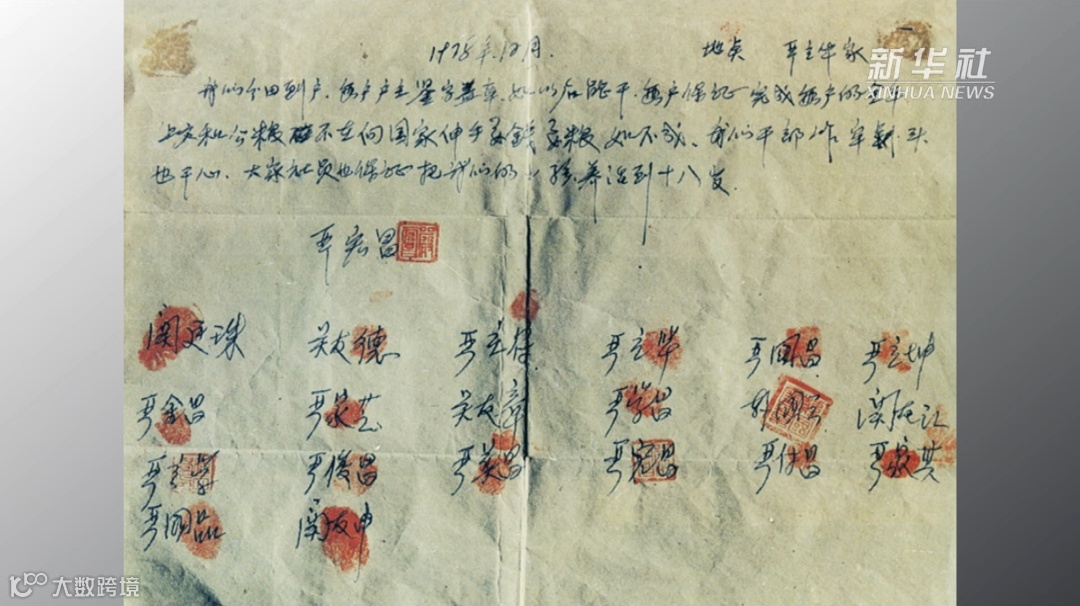 新华社
XINHUA NEWS
1978年12月. 地点 严立华家
我们分田到户,每户户主签字盖章,如以后能干,每户保证完成每户的全年
上交和公粮 不在向国家伸手要钱要粮 如不成,我们干部作牢 头
也干心,大家社员也保证把我们的小孩养活到十八岁.
严宏昌
关廷珠 关友德 严立符 严立华 严国昌 严立坤
严金昌 严家芝 关友章 严学昌 韩国云 关友江
严立学 严俊昌 严美昌 严宏昌 严付昌 严家其
严国品 关友申
大数跨境